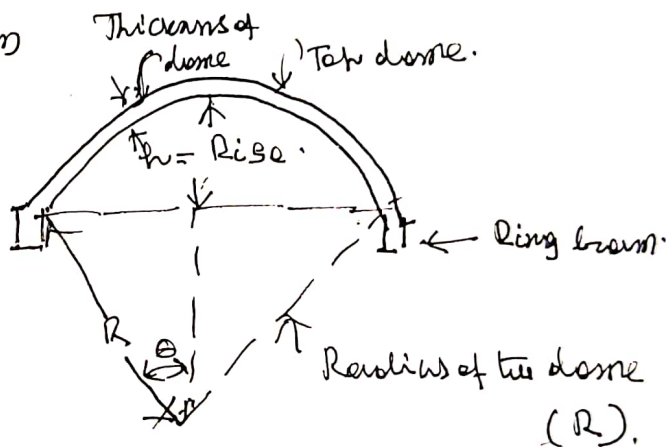 Thickness of
dome
Top dome.
h = Rise.
Ring beam.
R
θ
Radius of the dome
(R).